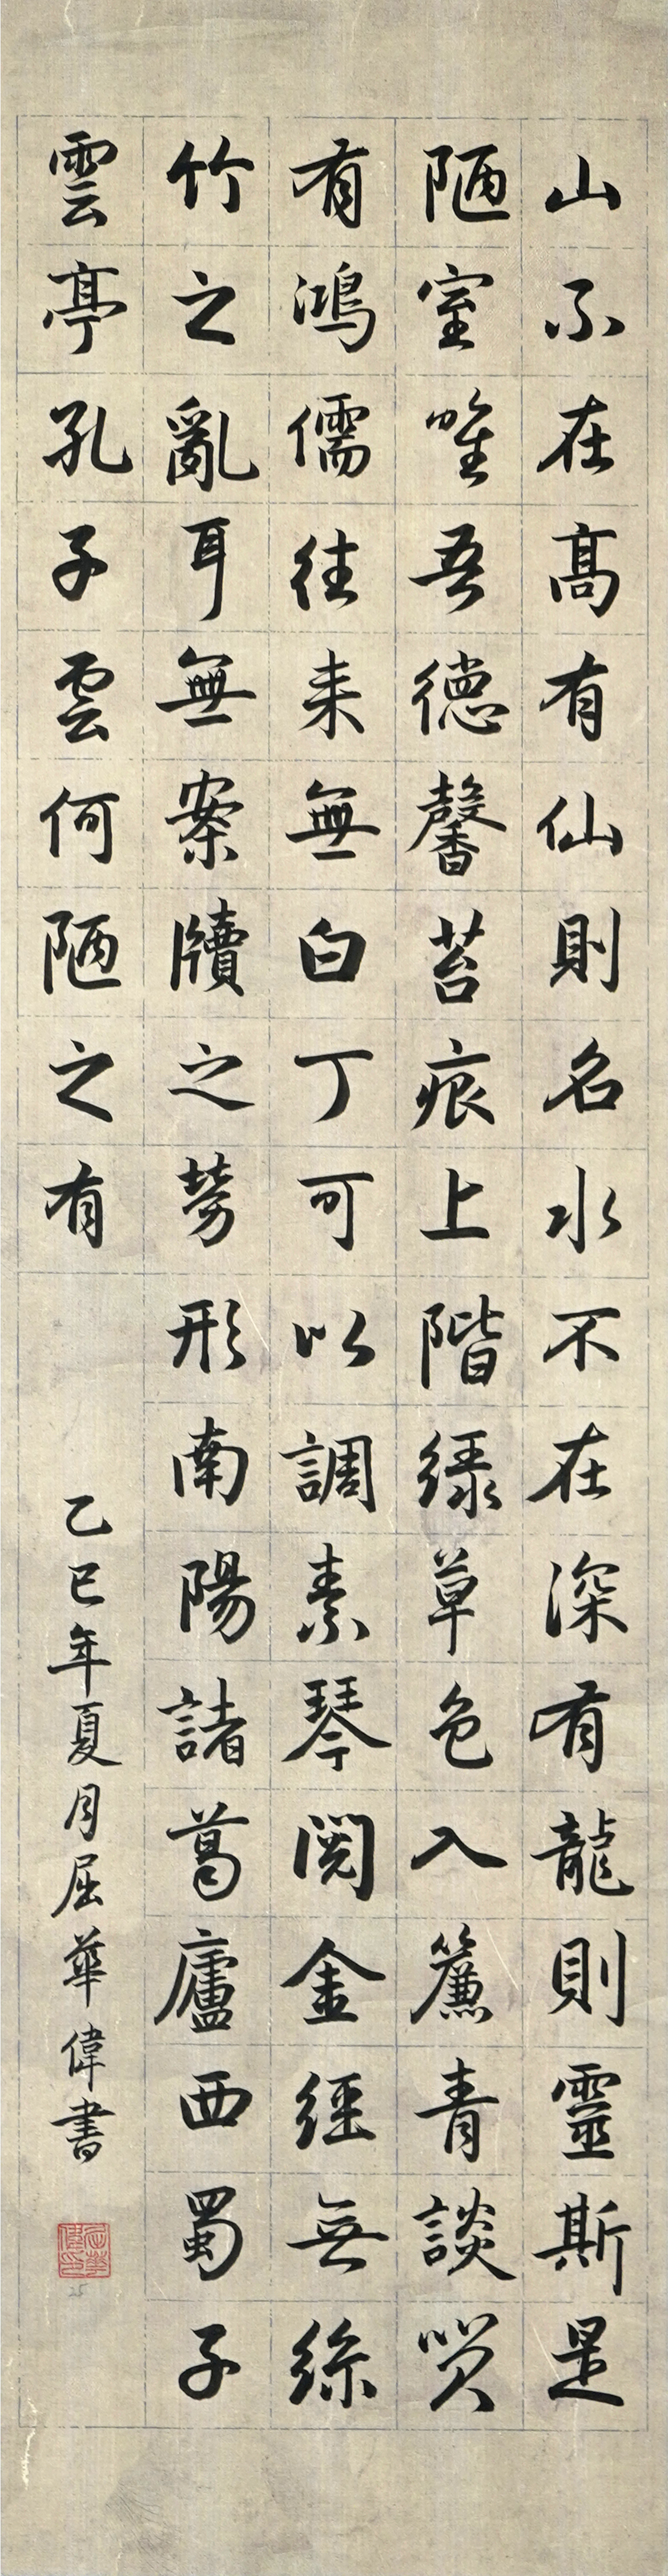 山不在高有仙則名水不在深有龍則靈斯是
陋室唯吾德馨苔痕上階緑草色入簾青談笑
有鴻儒往来無白丁可以調素琴閱金經無絲
竹之亂耳無案牘之勞形南陽諸葛廬西蜀子
雲亭孔子雲何陋之有
乙巳年夏月屈華偉書
屈華偉印
25